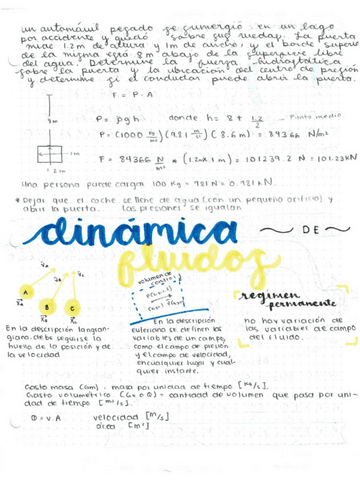 un automóvil pesado se sumergió en un lago
por accidente y quedó sobre sus ruedas. La puerta
mide 1.2 m de altura y 1m de ancho, y el borde superior
de la misma está 8m abajo de la superficie libre
del agua. Determine la fuerza hidrostática
sobre la puerta y la ubicación del centro de presión
y determine si el conductor puede abrir la puerta.
F = P · A
8m
P = ρgh donde h = 8 + 1.2/2 - Punto medio
P = (1000 kg/m³)(9.81 m/s²)(8.6 m) = 84366 N/m²
F = 84366 N/m² * (1.2m x 1m) = 101239.2 N ≈ 101.23kN
1.2m
Una persona puede cargar 100 Kg = 981 N = 0.981 kN.
* Dejar que el coche se llene de agua (con un pequeño orificio) y
abrir la puerta. Las presiones se igualan
dinámica
~ DE ~
fluidos
A
B
C
volumen de
control
regimen
permanente
En la descripción lagran-
giana debe seguirse la
huella de la posición y de
la velocidad
En la descripción
euleriana se definen las
variables de un campo,
como el campo de presión
y el campo de velocidad,
en cualquier lugar y cual-
quier instante.
no hay variación de
las variables de campo
del fluido.
Gasto masa (Gm) : masa por unidad de tiempo [Kg/s].
Gasto volumétrico (Gv o Q) = cantidad de volumen que pasa por uni-
dad de tiempo [m³/s].
Q = v.A velocidad [m/s]
área [m²]